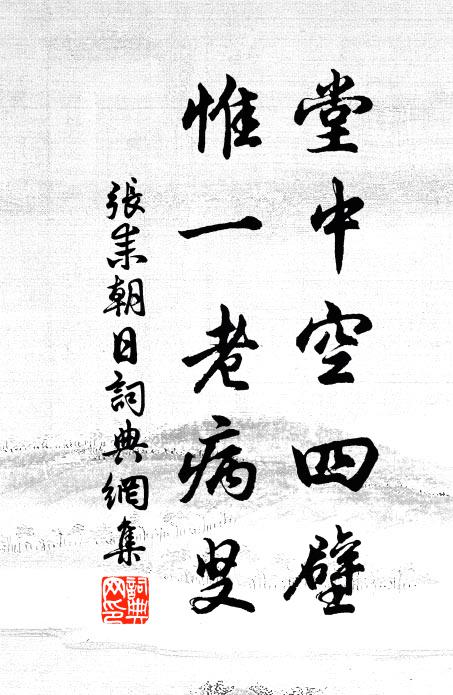 堂中空四壁
惟一老病叟
張耒朝日詞典網集
詞典网印